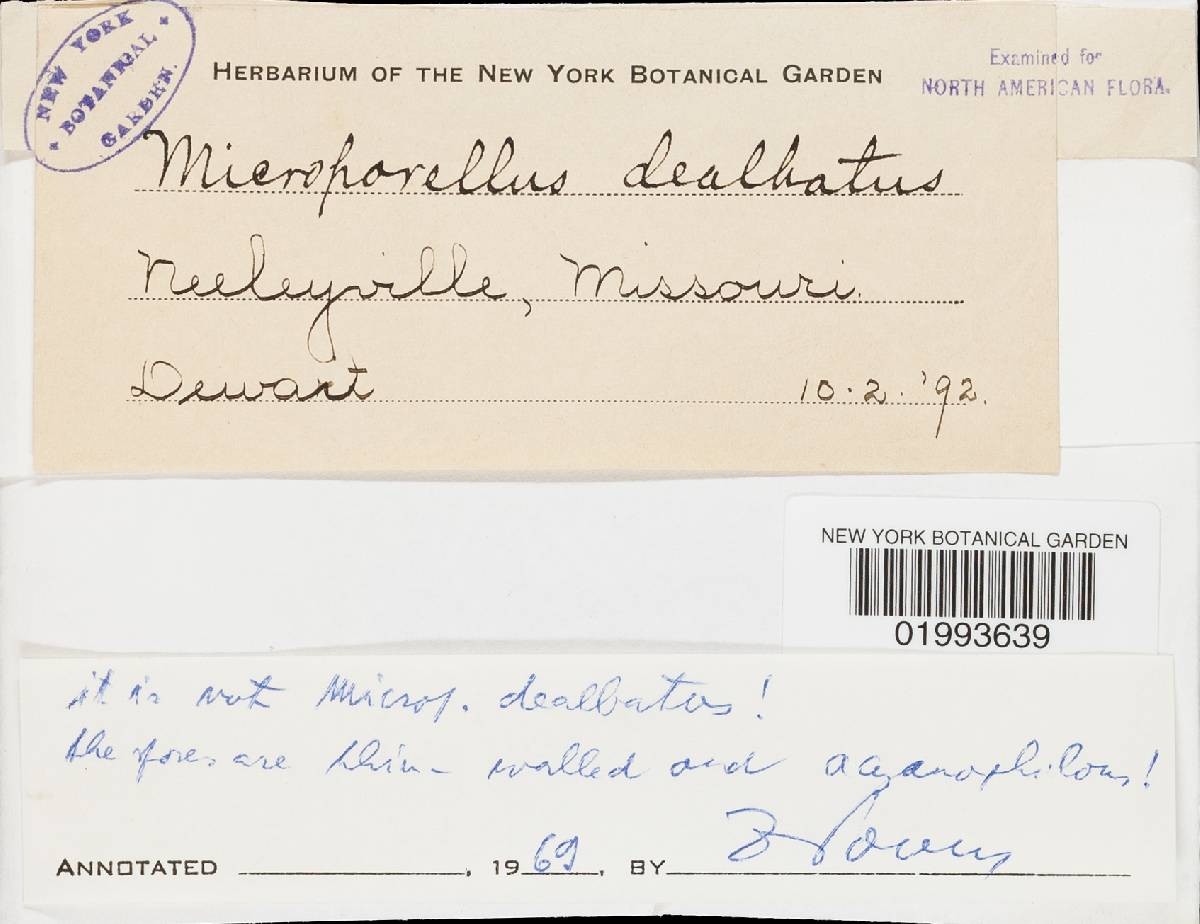 NEW YORK
BOTANICAL
GARDEN.
HERBARIUM OF THE NEW YORK BOTANICAL GARDEN
Examined for
NORTH AMERICAN FLORA.
Microporellus dealbatus
Neeleyville, Missouri.
Dewart 10.2.'92.
NEW YORK BOTANICAL GARDEN
01993639
it is not Microp. dealbatus!
the pores are thin-walled and acyanophilous!
ANNOTATED , 1969, BY